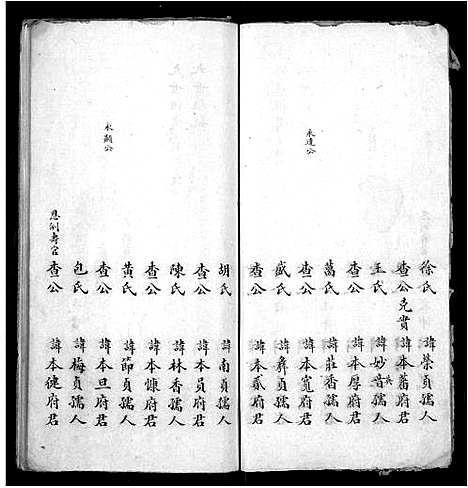 徐氏 諱榮貞孺人
查公克貴 諱本蕃府君
王氏 諱妙音孺人
查公 諱本厚府君
萬氏 諱莊香孺人
永達公
查公 諱本寬府君
盛氏 諱彝貞孺人
查公 諱本貳府君
胡氏 諱南貞孺人
查公 諱本員府君
陳氏 諱林香孺人
查公 諱本慷府君
黃氏 諱節貞孺人
永顯公
查公 諱本旦府君
包氏 諱梅貞孺人
恩例壽官 查公 諱本健府君